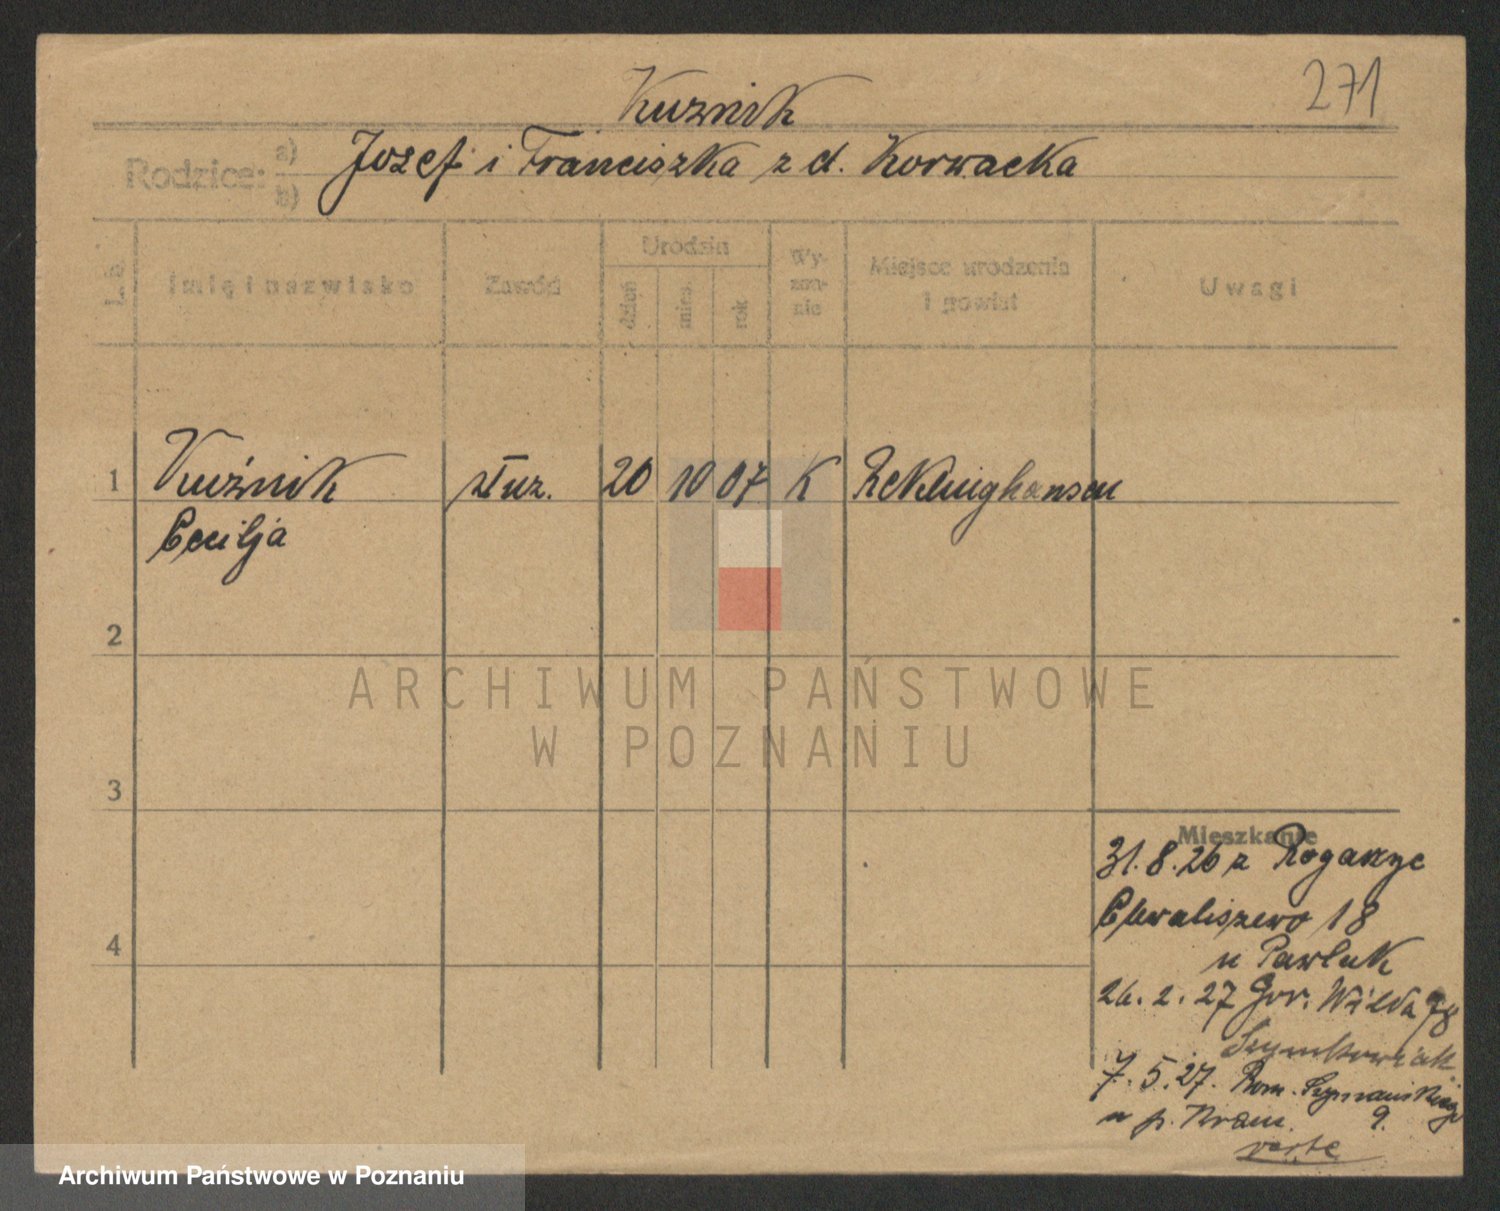 271
Kuznik
Rodzice: a) b) Józef i Franciszka z d. Korwacka
L. b. Imię i nazwisko Zawód Urodzin dzień mies. rok Wyznanie Miejsce urodzenia i powiat Uwagi
1 Kuźnik służ. 20 10 07 K Reklinghausen
Cecilja
2
3
4
Mieszkanie
31.8.26 z
Chwaliszewo 18
u Pawlak
26.2.27 Gór. Wilda 78
Szymkowiak
7.5.27. Rom. Szymańskiego 9.
u p.
verte
ARCHIWUM PAŃSTWOWE
W POZNANIU
Archiwum Państwowe w Poznaniu